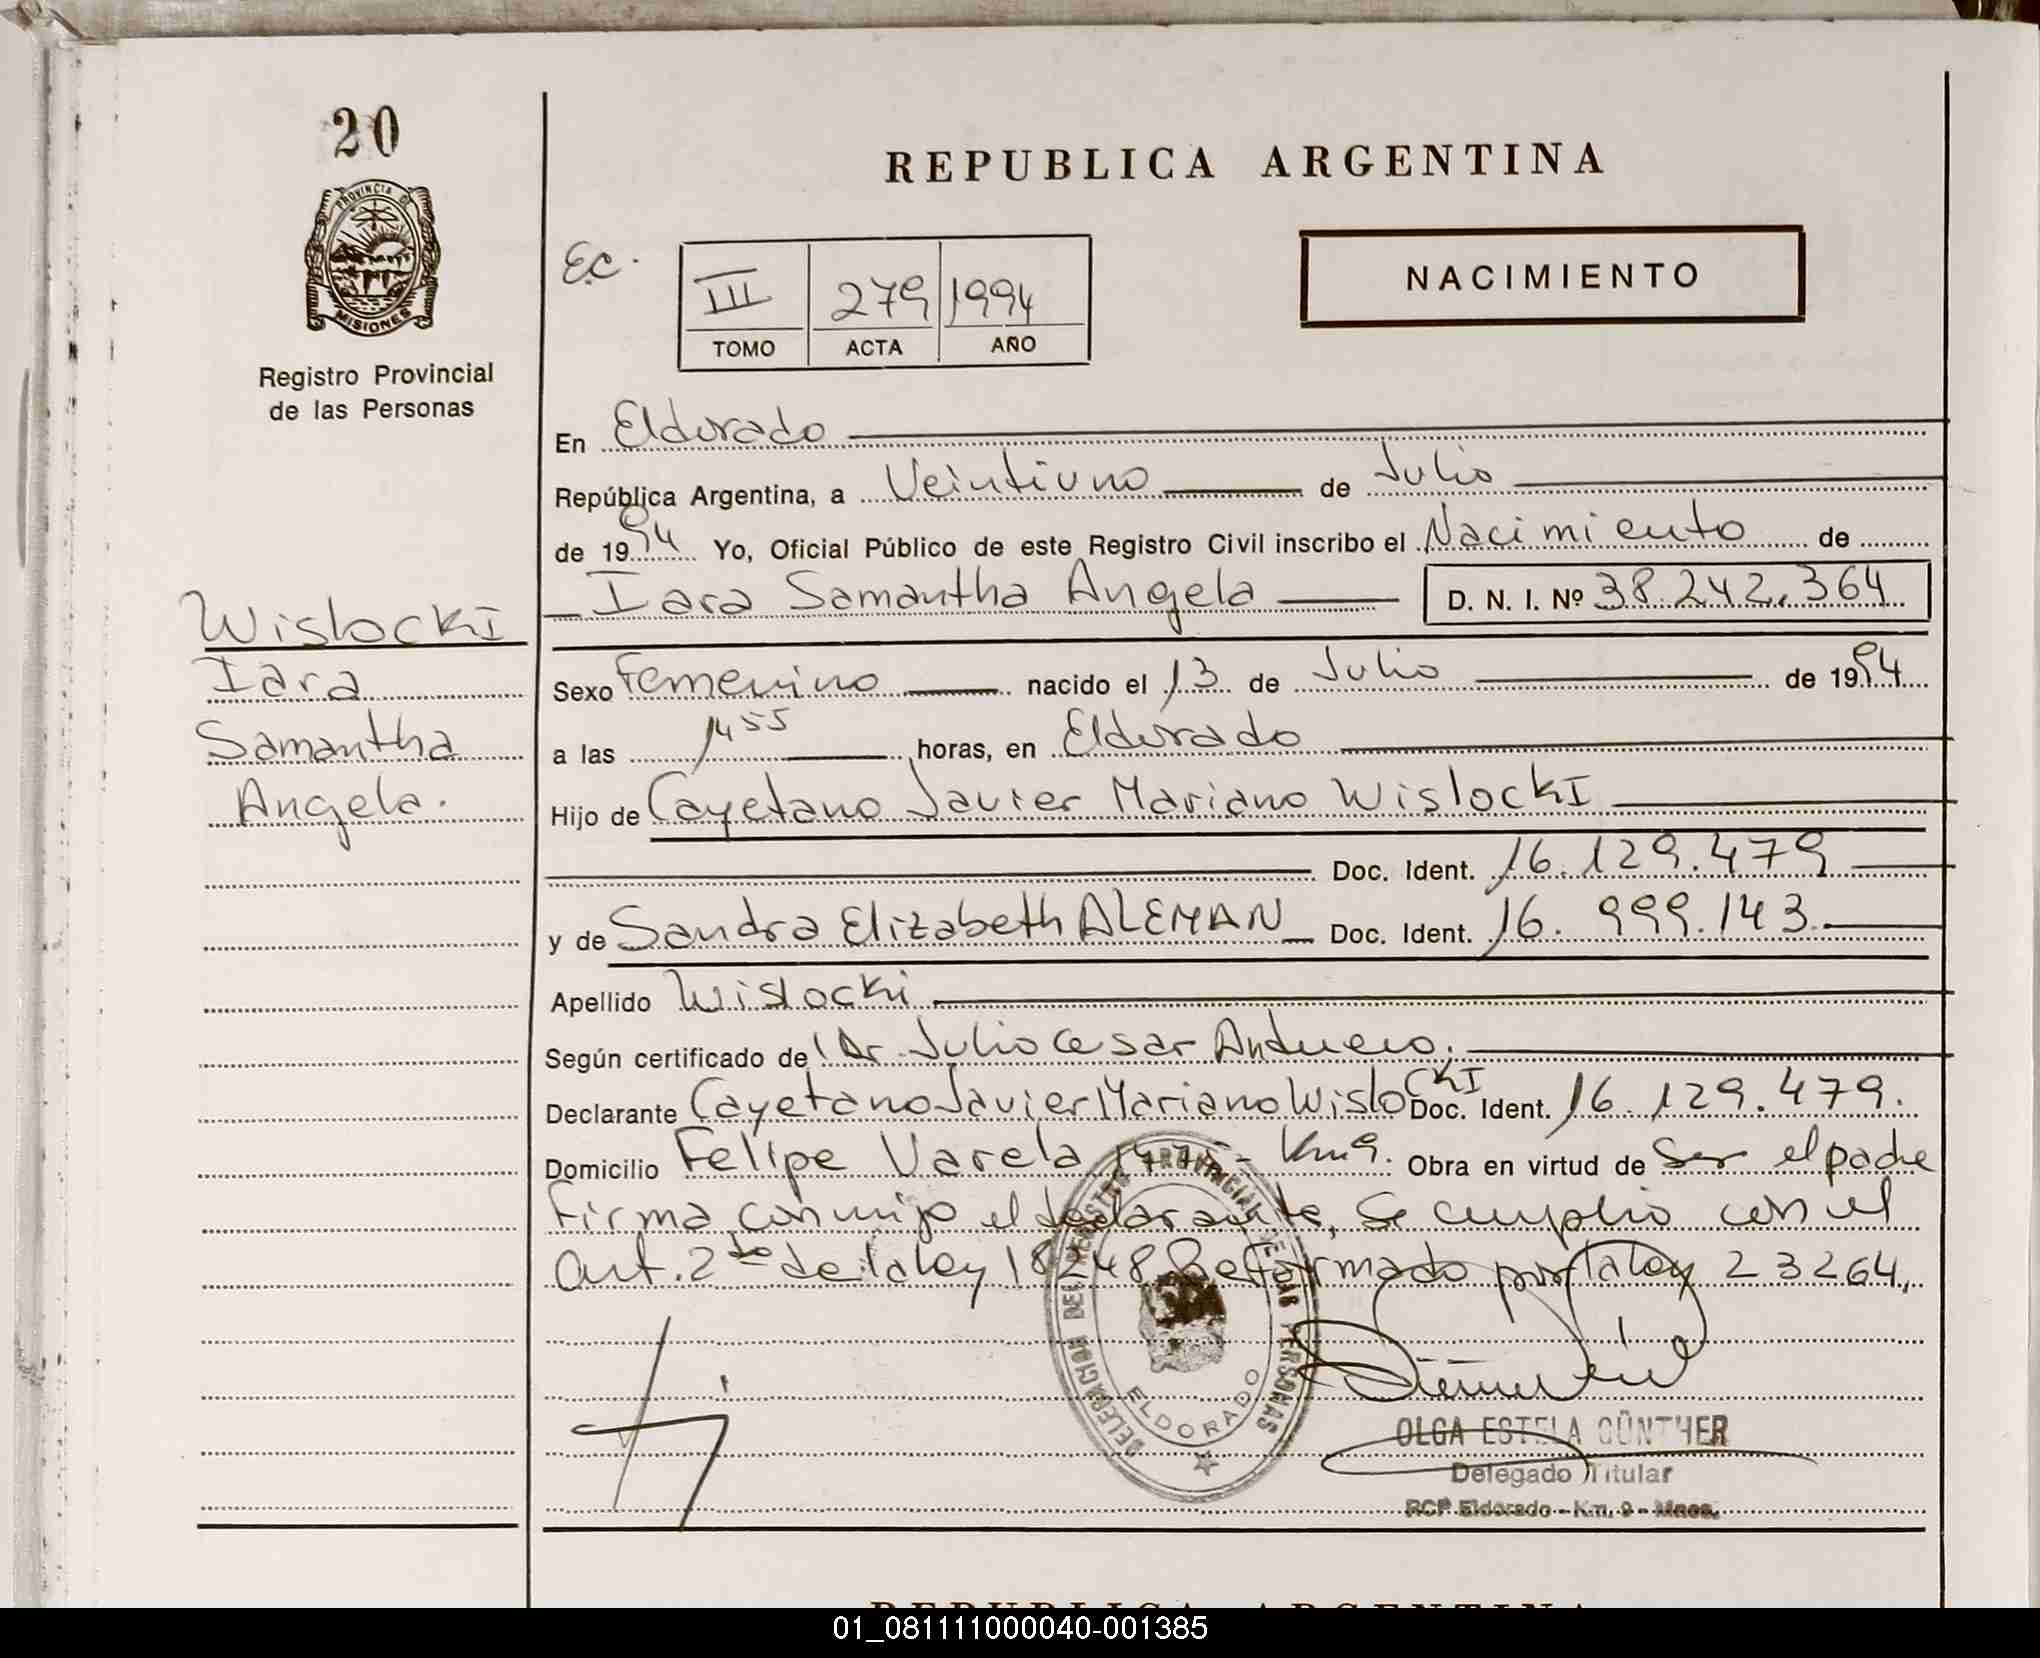 20
PROVINCIA DE
MISIONES
Registro Provincial
de las Personas
REPUBLICA ARGENTINA
E.C.
III 279 1994
TOMO ACTA AÑO
NACIMIENTO
En Eldorado
República Argentina, a Veintiuno de Julio
de 1994 Yo, Oficial Público de este Registro Civil inscribo el Nacimiento de
Iara Samantha Angela D. N. I. Nº 38.242.364
Wislocki
Iara
Samantha
Angela.
Sexo Femenino nacido el 13 de Julio de 1994
a las 14 55 horas, en Eldorado
Hijo de Cayetano Javier Mariano Wislocki
Doc. Ident. 16.129.479
y de Sandra Elizabeth ALEMAN Doc. Ident. 16.999.143
Apellido Wislocki
Según certificado de Dr. Julio Cesar
Declarante Cayetano Javier Mariano Wislocki Doc. Ident. 16.129.479.
Domicilio Felipe Varela - Km 9. Obra en virtud de Ser el padre
Firma conmigo el declarante, Se cumplio con el
Art. 2do de la ley 18248 Reformado por la ley 23264,
DELEGACION DEL REGISTRO PROVINCIAL DE LAS PERSONAS
ELDORADO
OLGA ESTELA GÜNTHER
Delegado Titular
RCP Eldorado - Km. 9 - Mnes.
REPUBLICA ARGENTINA
01_081111000040-001385